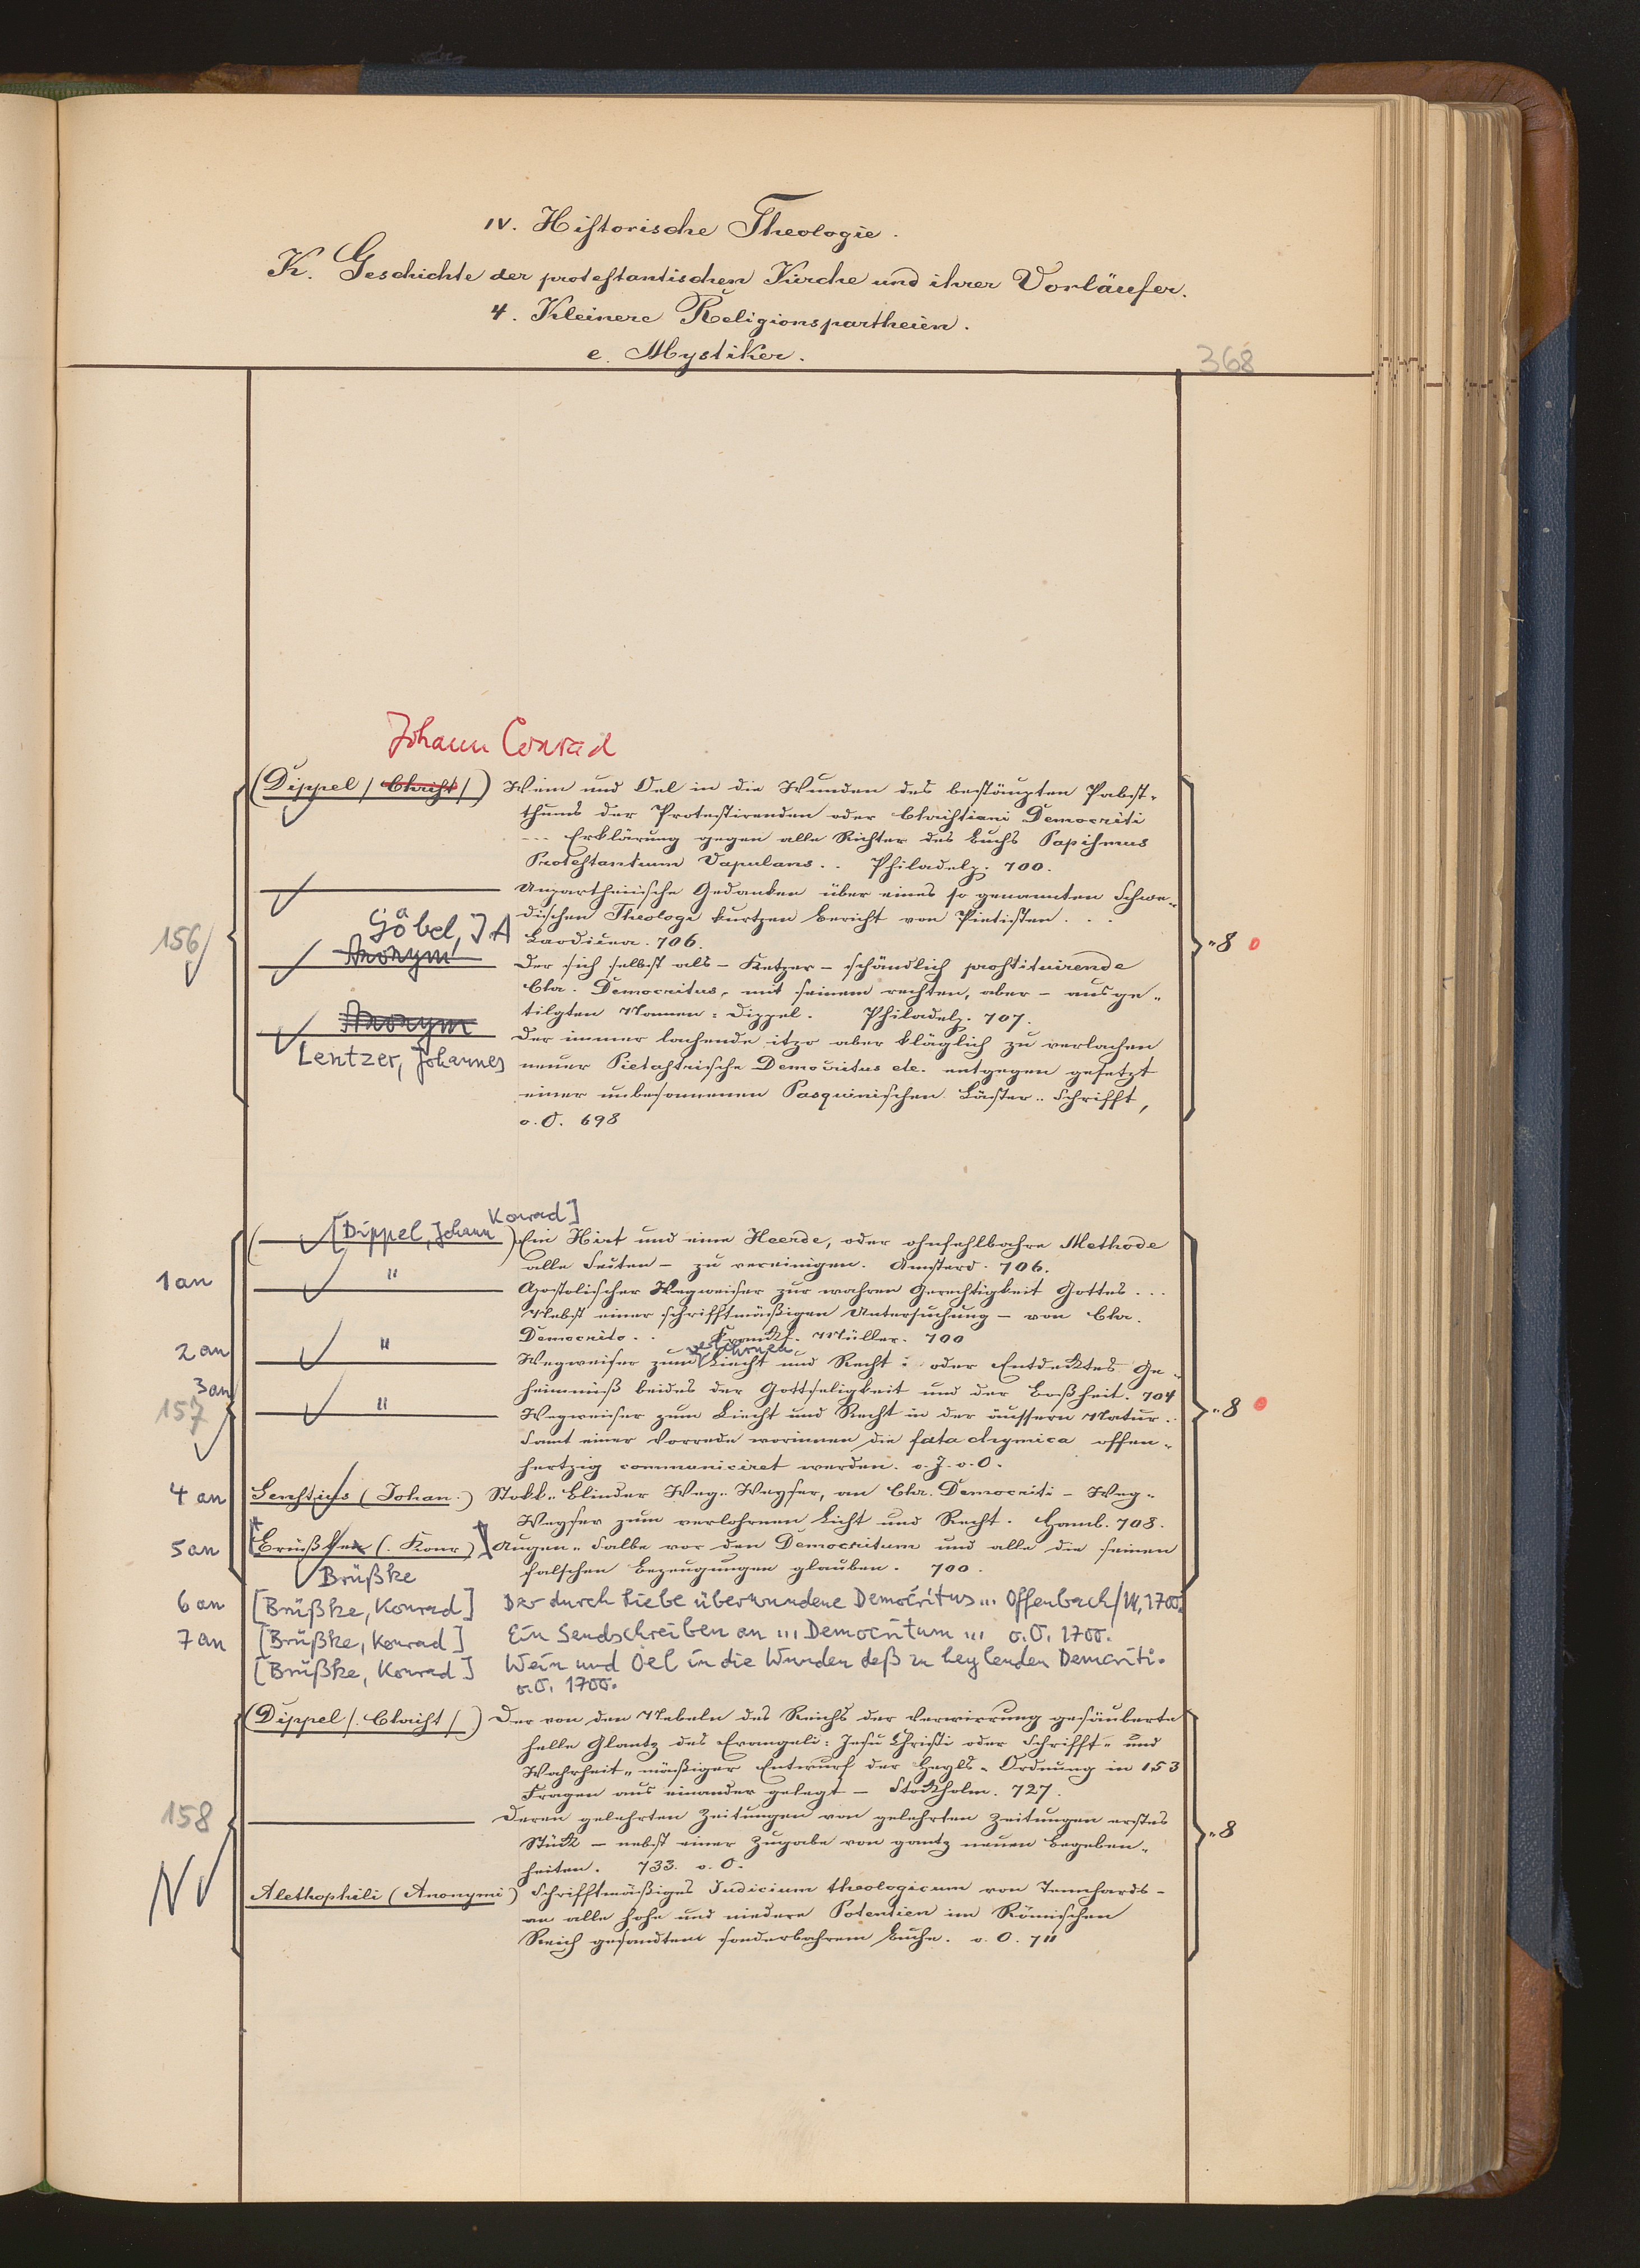 IV. Historische Theologie.
K. Geschichte der protestantischen Kirche und ihrer Vorläufer.
4. Kleinere Religionspartheien.
e. Mystiker.
368
Johann Conrad
(Dippel /. Christ /.) Wein und Oel in die Wunden des bestäupten Pabst-
thums der Protestirenden oder Christiani Democriti
--- Erklärung gegen alle Richter des Buchs Papismus
Protestantium Vapulans .. Philadelp. 700.
Unpartheiische Gedanken über eines so genannten Schwe-
dischen Theologi kurtzen Bericht von Pietisten . . .
Göbel, J. A
Laodicea. 706.
156
"8
Anonym
Der sich selbst als - Ketzer - schändlich prostituirende
Chr. Democritus, mit seinem rechten, aber - ausge-
tilgten Namen: Dippel. Philadelp. 707.
Anonym
Der immer lachende itzo aber kläglich zu verlachen
Lentzer, Johannes
neuer Pietistische Democritus etc. entgegen gesetzt
einer unbesonnenen Pasquinischen Läster-Schrifft,
o. O. 698
[Dippel, Johann Konrad]
Ein Hirt und eine Heerde, oder ohnfehlbahre Methode
alle Seiten - zu vereinigen. Amsterd. 706.
1 an " Apostolischer Wegweiser zur wahren Gerechtigkeit Gottes ...
Nebst einer schrifftmäßigen Untersuchung - von Chr.
Democrito . . Frankf. Müller. 700
verlohrnen
2 an " Wegweiser zum Liecht und Recht: oder Entdecktes Ge-
heimniß beides der Gottseligkeit und der Boßheit. 704
3 an
157 " Wegweiser zum Liecht und Recht in der äussern Natur.
"8
Samt einer Vorrede worinnen die fata chymica offen-
hertzig communiciret werden. o. J. o. O.
4 an Senstius (Johan.) Stokk-Blinder Weg-Weyser, an Chr. Democriti - Weg-
Weyser zum verlohrnen Licht und Recht. Hamb. 708.
5 an [Brüßken (. Konr)] Augen-Salbe vor den Democritum und alle die seinen
Brüßke
falschen Bezeugungen glauben. 700.
6 an [Brüßke, Konrad] Der durch Liebe überwundene Democritus ... Offenbach/M, 1700.
7 an [Brüßke, Konrad] Ein Sendschreiben an ... Democritum ... o.O. 1700.
[Brüßke, Konrad] Wein und Oel in die Wunden deß zu heylenden Democriti.
o.O. 1700.
(Dippel /. Christ /.) Der von den Nebeln des Reichs der Verwirrung gesäuberte
helle Glantz des Evangelii Jesu Christi oder Schrifft- und
Wahrheit-mäßiger Entwurf der Heyls-Ordnung in 153
Fragen aus einander gelegt - Stockholm. 727.
158
Deren gelehrten Zeitungen von gelehrten Zeitungen erstes
"8
Stück - nebst einer Zugabe von gantz neuen Begeben-
heiten. 733. o. O.
N
Alethophili (Anonymi) Schrifftmäßiges Judicium theologicum von Tennhards -
an alle hohe und niedere Potentien im Römischen
Reich gesandten sonderbahrem Buche. o. O. 711